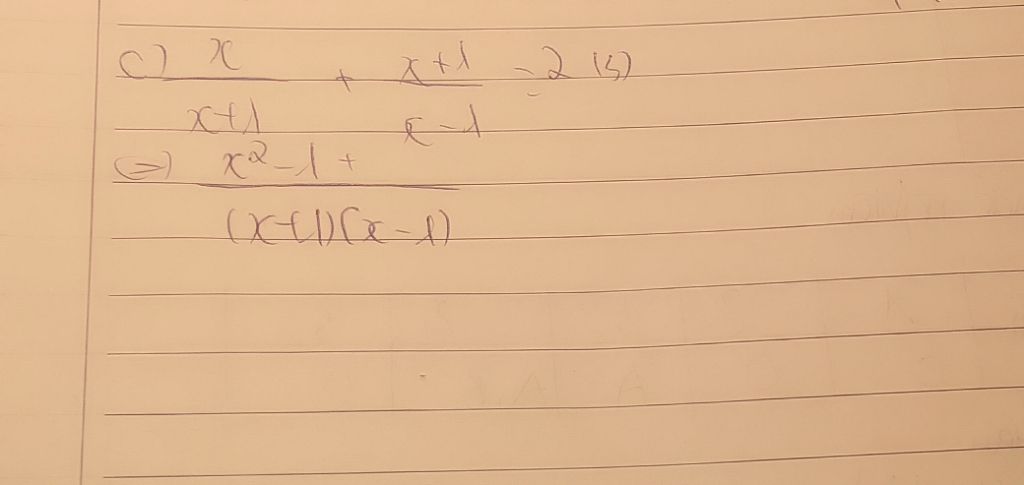 c) x/(x+1) + (x+1)/(x-1) = 2 (5)
(=) (x²-1+)/((x+1)(x-1))